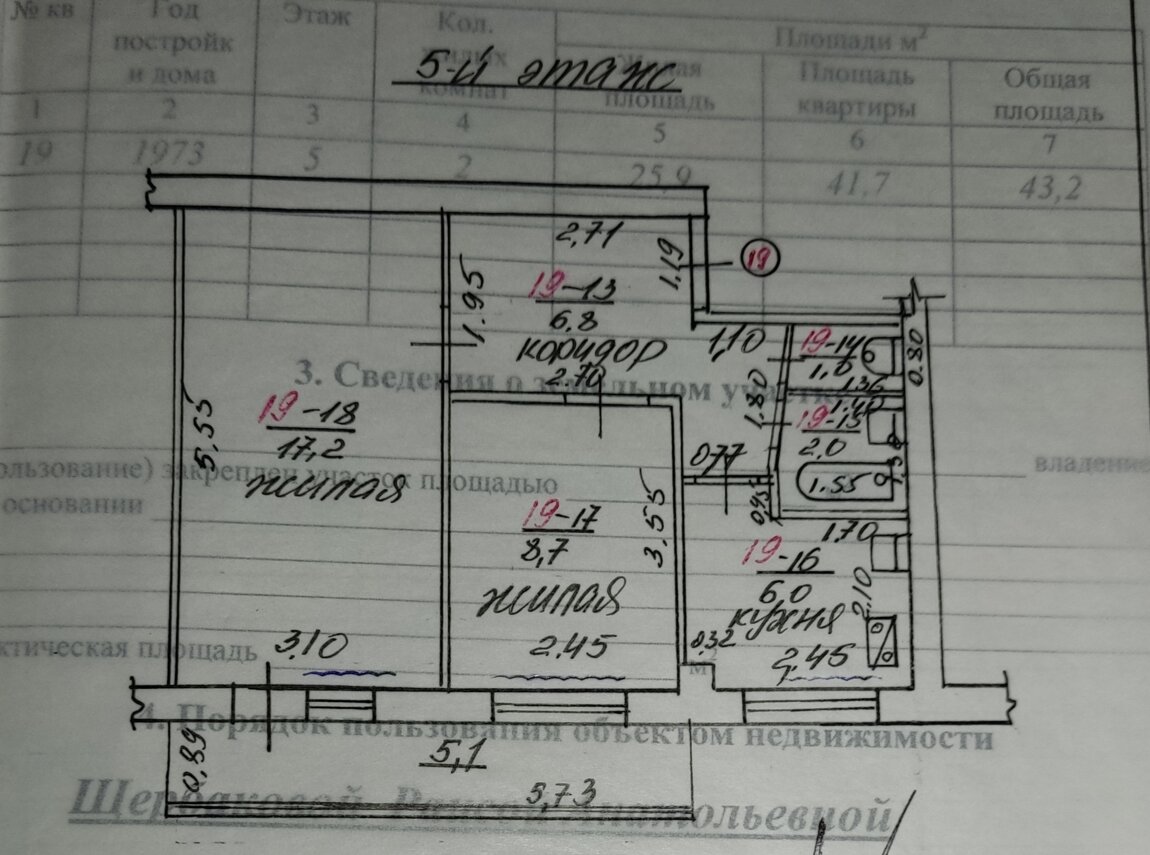 № кв
Год постройки дома
Этаж
Кол. жилых комнат
Площади м²
Жилая площадь
Площадь квартиры
Общая площадь
1 2 3 4 5 6 7
19 1973 5 2 25,9 41.7 43,2
5-й этаж
2,71
1,19
19
1.95
19-13
6.8
коридор
2.70
1,10
19-14
1,0
1.36
0.80
3. Сведения о земельном участке
1.80
1.40
19-15
2.0
1.55
19-18
17,2
жилая
5,55
0,77
0,45
владение
пользование) закреплен участок площадью
основании
19-17
8,7
жилая
3.55
2.45
1.70
19-16
6,0
кухня
2.10
0.32
2.45
3.10
фактическая площадь
м
4. Порядок пользования объектом недвижимости
0.89
5,1
5,73
Щербаковой Раисой Анатольевной